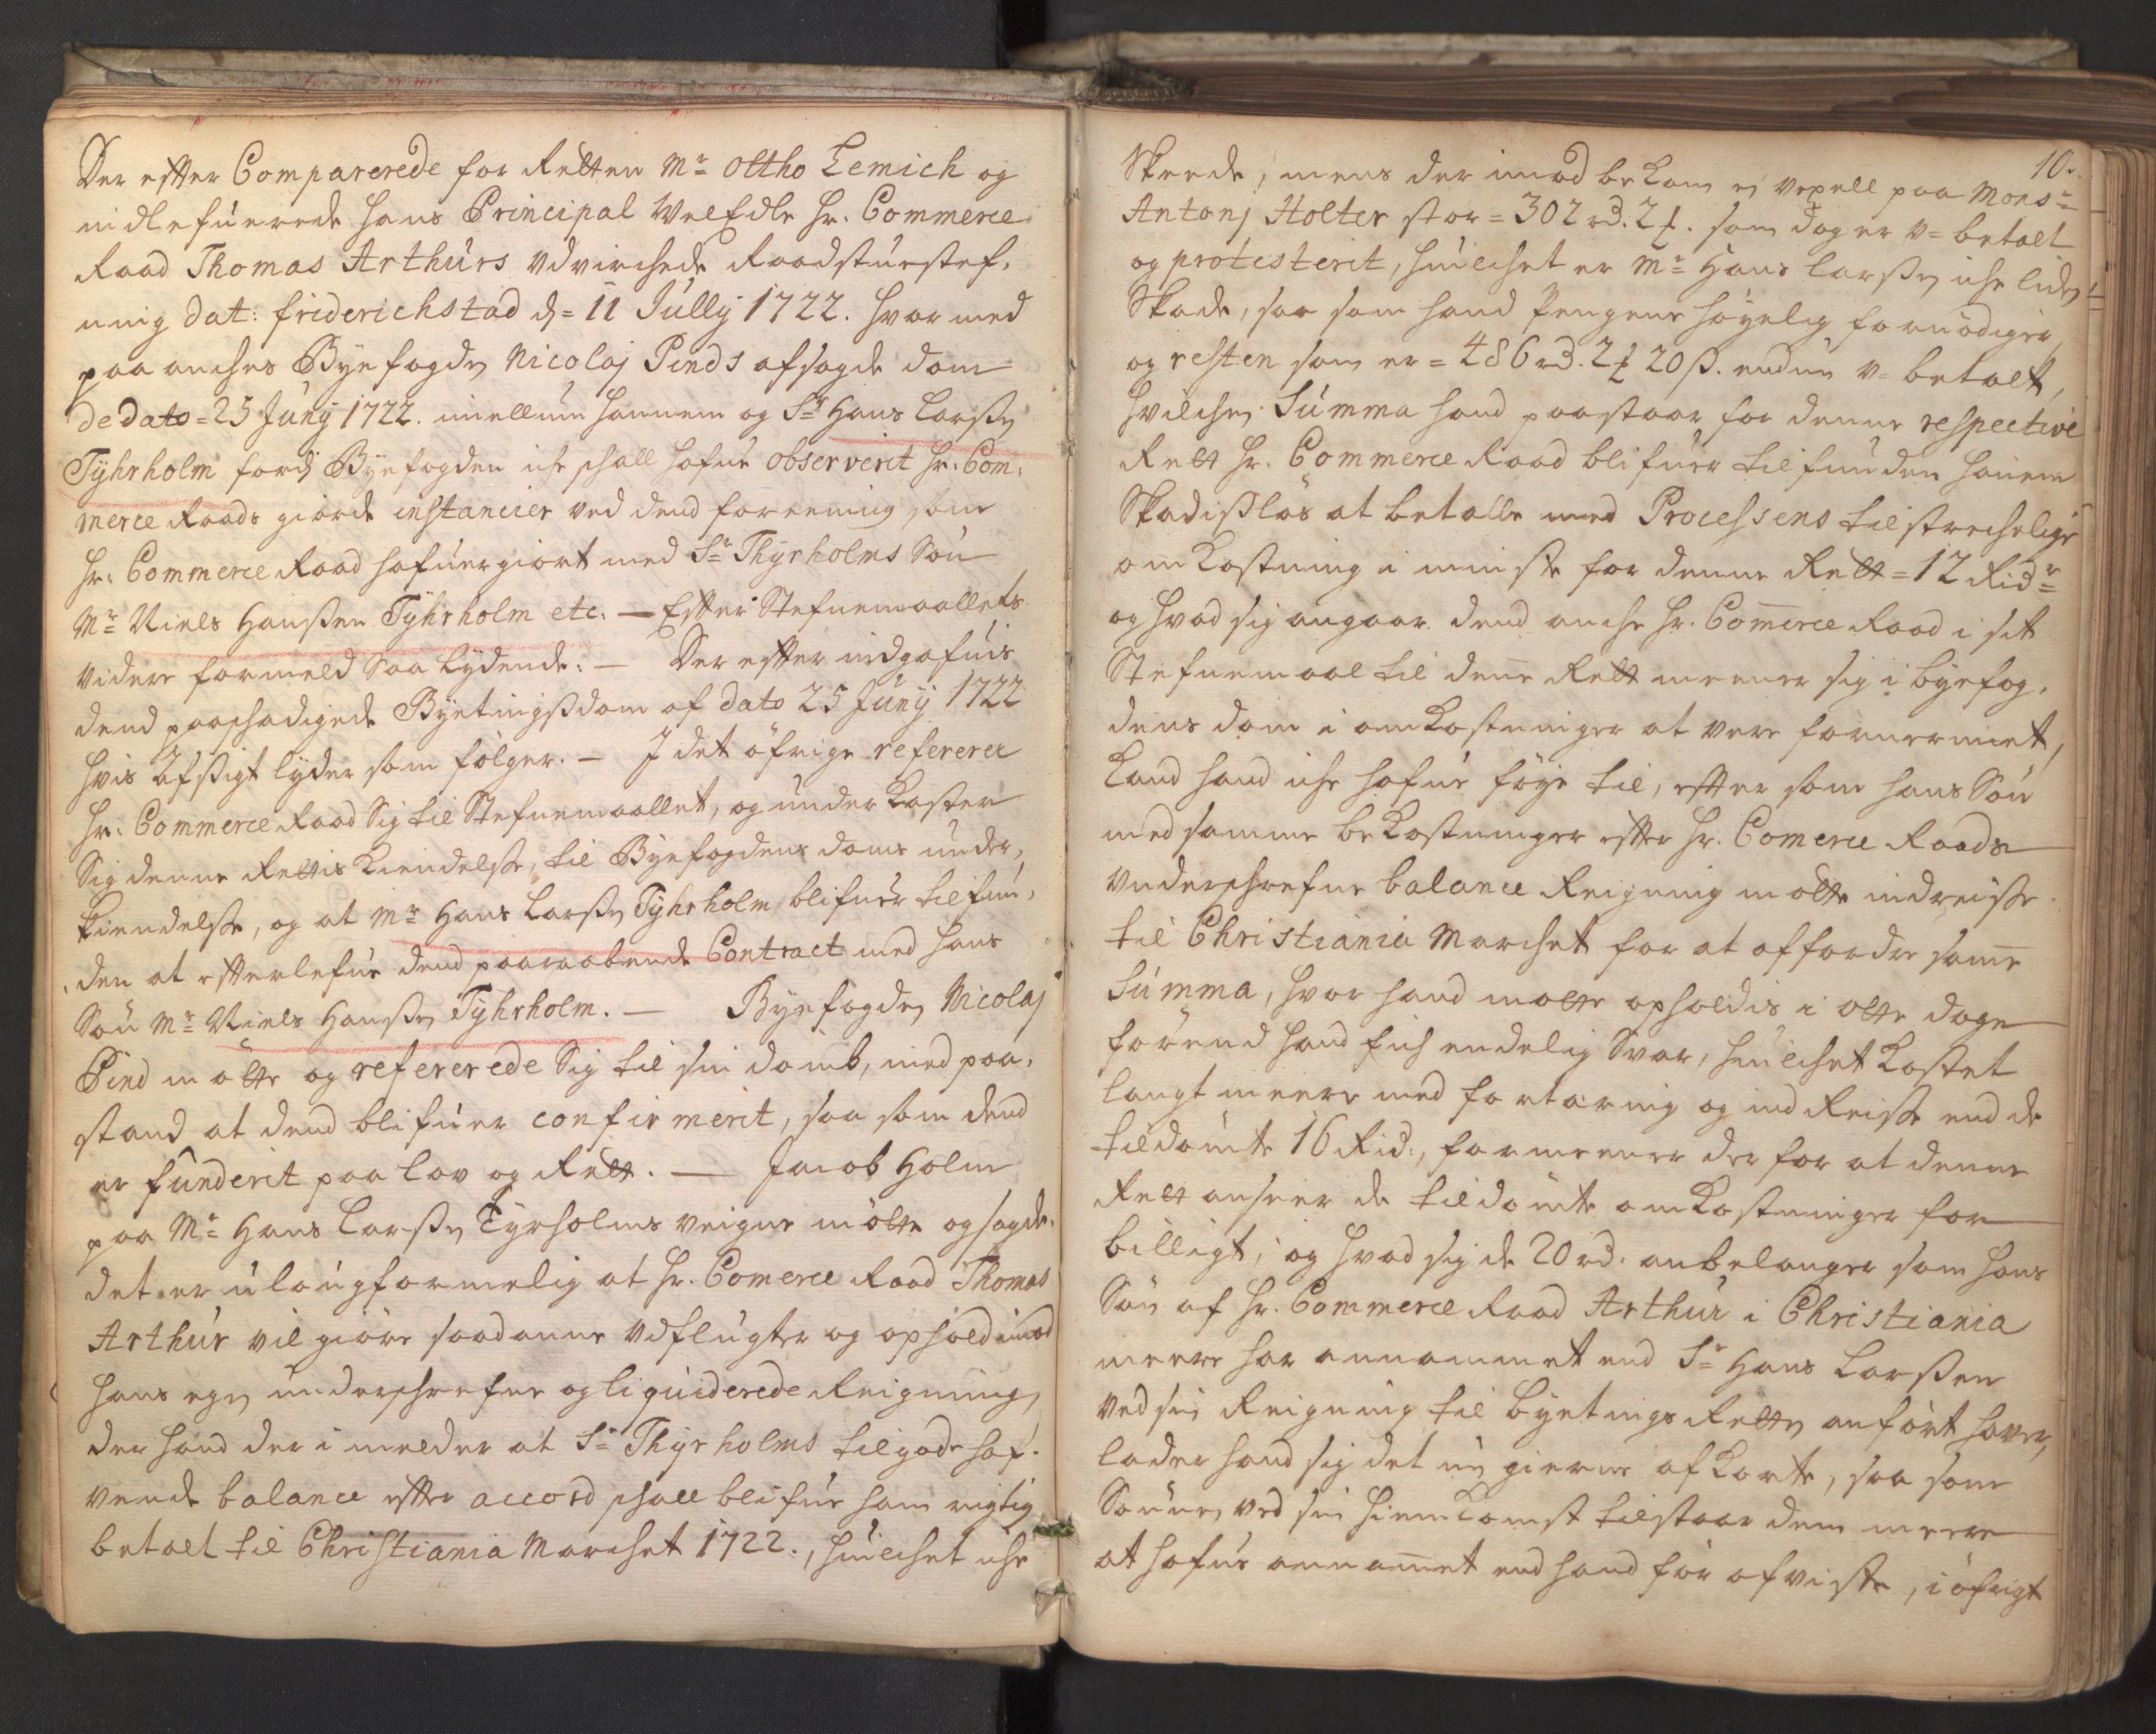 Der effter Comparerede for Retten Mr Ottho Lemich og
indlefuerede hans Principal WelEdle Hr. Commerce
Raad Thomas Arthurs Udvirchede Raadstuestef-
ning dat: friderichstad d= 11 Jully 1722. hvor med
paa anches Byefogden Nicolaj Pinds afsagde dom
de dato = 25 Juny 1722. imellum hannem og Sr Hans Larsen
Tyhrholm fordj Byefogden iche schall hafue observerit Hr. Com-
merce Raads giorde instancier ved dend forening som
Hr: Commerce Raad hafuer giort med Sr Thyrholms Søn
Mr Niels Hanssen Tyhrholm etc. — Effter Stefnemaallets
videre formeld Saa Lydende: — Der effter indgafuis
dend paaschadigede Byetingssdom af dato 25 Juny 1722
hvis Afsigt lyder som følger. — I det øfrige refererer
Hr: Commerce Raad Sig til Stefnemaallet, og underkaster
Sig denne Rettis Kiendelsse, til Byefogdens doms under-
kiendelsse, og at Mr Hans Larssen Tyhrholm blifuer tilfun-
den at effterlefue dend paaraabende Contract med hans
Søn Mr Niels Hanssen Tyhrholm. — Byefogden Nicolaj
Pind møtte og refererede Sig til sin domb, med paa-
stand at dend blifuer confirmerit, saa som dend
er funderit paa lov og Rett. — Jacob Holm
paa Mr Hans Larssen Tyrholms veigne møtte og sagde.
det er ulougformelig at Hr. Comerce Raad Thomas
Arthur vil giøre saadanne Udflugter og ophold imod
hans egen underschrefne og liquiderede Reigning,
der hand der i melder at Sr Thyrholms tilgode haf-
vende balance effter accord schall blifue ham rigtig
betalt til Christiania Marchet 1722., huilchet iche
10.
Skeede, mens der imod bekom en vexell paa Monsr
Antonj Holter stor = 302 rd. 2 . som dog er u= betalt
og protesterit, huilchet er Mr Hans Larssen iche liden
Skade, saa som hand Pengene høyelig fornødiger,
og resten som er = 486 rd. 2 20 ß. endnu u= betalt,
hvilchen Summa hand paastaar for denne respective
Rett Hr. Commerce Raad blifuer tilfunden hannem
Skadissløs at betalle med Processens tilstrechelige
omkostning i minste for denne Rett = 12 Ridr
og hvad sig angaar dend anche Hr. Comerce Raad i sit
Stefnemaal til denne Rett meener sig i byefog-
dens dom i omkostninger at vere fornermet,
kand hand iche hafue føye til, effter som hans Søn
med samme bekostninger effter Hr. Comerce Raads
underschrefne balance Reigning motte indreisse
til Christiania Marchet for at affordre samme
Summa, hvor hand motte opholdis i otte dage
førend hand fich endelig Svar, huilchet kostet
langt meere med fortæring og ind Reisse end de
tildømte 16 Rid:, formeener der for at denne
Rett anseer de tildømte omkostninger for
billigt, og hvad sig de 20 rd. anbelanger som hans
Søn af Hr. Commerce Raad Arthur i Christiania
meere har annammet end Sr Hans Larssen
ved sin Reigning til byetings Retten anført haver,
lader hand sig det nu gierne afkorte, saa som
Sønnen ved sin hiemkomst tilstaar dem meere
at hafue annammet end hand før afviste, i øfrigt